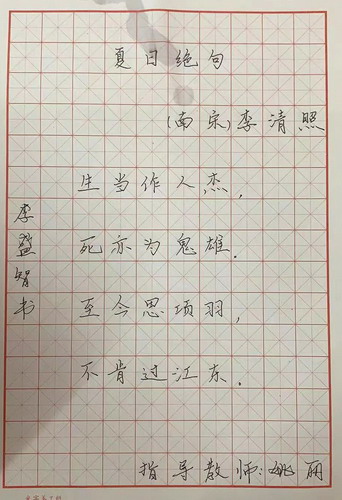 夏日绝句
(南宋)李清照
生当作人杰,
死亦为鬼雄.
至今思项羽,
不肯过江东.
李盛智书
指导教师:姚丽